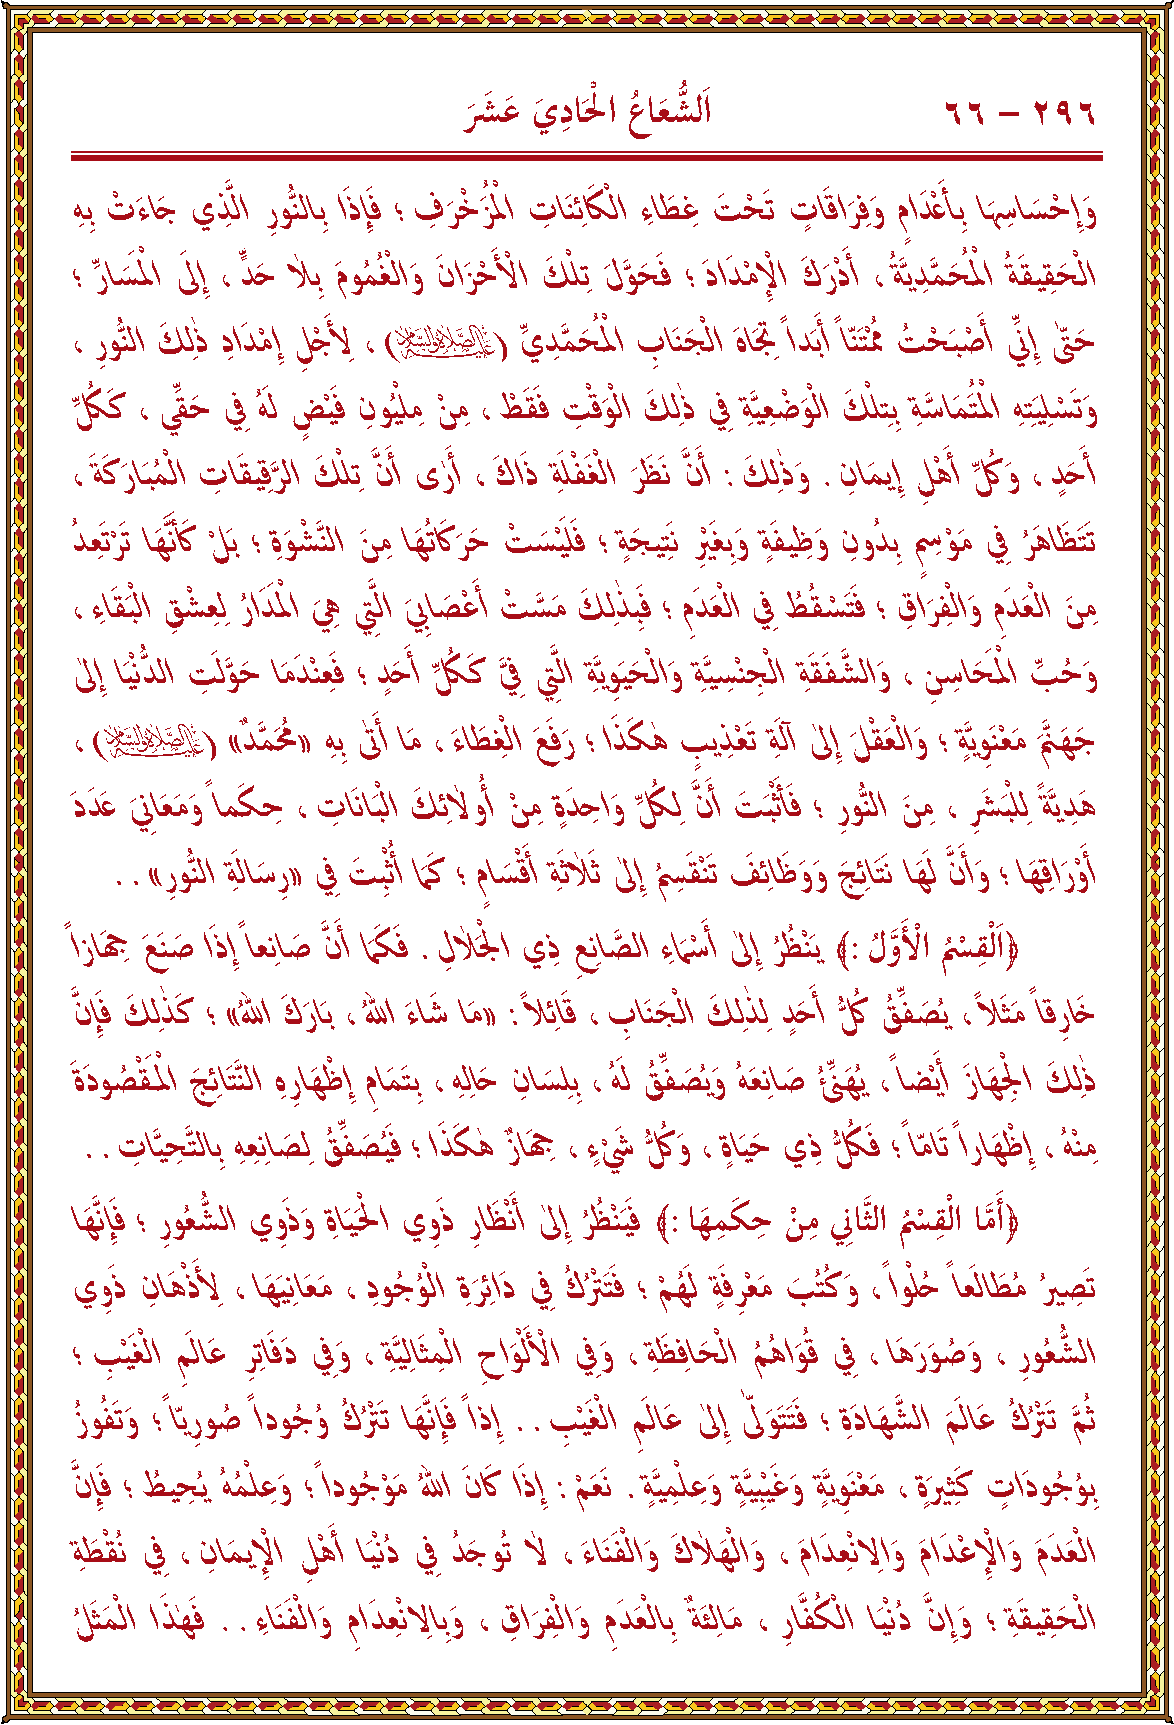 ٢٩٦ – ٦٦ اَلشُّعَاعُ الْحَادِيَ عَشَرَ
وَإِحْسَاسِهَا بِأَعْدَامٍ وَفِرَاقَاتٍ تَحْتَ غِطَاءِ الْكَائِنَاتِ الْمُزَخْرَفِ ؛ فَإِذَا بِالنُّورِ الَّذِي جَاءَتْ بِهِ
الْحَقِيقَةُ الْمُحَمَّدِيَّةُ ، أَدْرَكَ الْإِمْدَادَ ؛ فَحَوَّلَ تِلْكَ الْأَحْزَانَ وَالْغُمُومَ بِلَا حَدٍّ ، إِلَى الْمَسَارِّ ؛
حَتّٰى إِنِّي أَصْبَحْتُ مُمْتَنّاً أَبَداً تِجَاهَ الْجَنَابِ الْمُحَمَّدِيِّ (عَلَيْهِ الصَّلَاةُ وَالسَّلَامُ) ، لِأَجْلِ إِمْدَادِ ذٰلِكَ النُّورِ ،
وَتَسْلِيَتِهِ الْمُتَمَاسَّةِ بِتِلْكَ الْوَضْعِيَّةِ فِي ذٰلِكَ الْوَقْتِ فَقَطْ ، مِنْ مِلْيُونِ فَيْضٍ لَهُ فِي حَقِّي ، كَكُلِّ
أَحَدٍ ، وَكُلِّ أَهْلِ إِيمَانٍ . وَذٰلِكَ : أَنَّ نَظَرَ الْغَفْلَةِ ذَاكَ ، أَرٰى أَنَّ تِلْكَ الرَّقِيقَاتِ الْمُبَارَكَةَ ،
تَتَظَاهَرُ فِي مَوْسِمٍ بِدُونِ وَظِيفَةٍ وَبِغَيْرِ نَتِيجَةٍ ؛ فَلَيْسَتْ حَرَكَاتُهَا مِنَ النَّشْوَةِ ؛ بَلْ كَأَنَّهَا تَرْتَعِدُ
مِنَ الْعَدَمِ وَالْفِرَاقِ ؛ فَتَسْقُطُ فِي الْعَدَمِ ؛ فَبِذٰلِكَ مَسَّتْ أَعْصَابِيَ الَّتِي هِيَ الْمَدَارُ لِعِشْقِ الْبَقَاءِ ،
وَحُبِّ الْمَحَاسِنِ ، وَالشَّفَقَةِ الْجِنْسِيَّةِ وَالْحَيَوِيَّةِ الَّتِي فِيَّ كَكُلِّ أَحَدٍ ؛ فَعِنْدَمَا حَوَّلَتِ الدُّنْيَا إِلٰى
جَهَنَّمَ مَعْنَوِيَّةٍ ؛ وَالْعَقْلَ إِلٰى آلَةِ تَعْذِيبٍ هٰكَذَا ؛ رَفَعَ الْغِطَاءَ ، مَا أَتٰى بِهِ «مُحَمَّدٌ» (عَلَيْهِ الصَّلَاةُ وَالسَّلَامُ) ،
هَدِيَّةً لِلْبَشَرِ ، مِنَ النُّورِ ؛ فَأَثْبَتَ أَنَّ لِكُلِّ وَاحِدَةٍ مِنْ أُولٰئِكَ الْبَانَاتِ ، حِكَماً وَمَعَانِيَ عَدَدَ
أَوْرَاقِهَا ؛ وَأَنَّ لَهَا نَتَائِجَ وَوَظَائِفَ تَنْقَسِمُ إِلٰى ثَلَاثَةِ أَقْسَامٍ ؛ كَمَا أُثْبِتَ فِي «رِسَالَةِ النُّورِ» . .
﴿اَلْقِسْمُ الْأَوَّلُ :﴾ يَنْظُرُ إِلٰى أَسْمَاءِ الصَّانِعِ ذِي الْجَلَالِ . فَكَمَا أَنَّ صَانِعاً إِذَا صَنَعَ جِهَازاً
خَارِقاً مَثَلاً ، يُصَفِّقُ كُلُّ أَحَدٍ لِذٰلِكَ الْجَنَابِ ، قَائِلاً : «مَا شَاءَ اللهُ ، بَارَكَ اللهُ» ؛ كَذٰلِكَ فَإِنَّ
ذٰلِكَ الْجِهَازَ أَيْضاً ، يُهَنِّئُ صَانِعَهُ وَيُصَفِّقُ لَهُ ، بِلِسَانِ حَالِهِ ، بِتَمَامِ إِظْهَارِهِ النَّتَائِجَ الْمَقْصُودَةَ
مِنْهُ ، إِظْهَاراً تَامّاً ؛ فَكُلُّ ذِي حَيَاةٍ ، وَكُلُّ شَيْءٍ ، جِهَازٌ هٰكَذَا ؛ فَيُصَفِّقُ لِصَانِعِهِ بِالتَّحِيَّاتِ . .
﴿أَمَّا الْقِسْمُ الثَّانِي مِنْ حِكَمِهَا :﴾ فَيَنْظُرُ إِلٰى أَنْظَارِ ذَوِي الْحَيَاةِ وَذَوِي الشُّعُورِ ؛ فَإِنَّهَا
تَصِيرُ مُطَالَعاً حُلْواً ، وَكُتُبَ مَعْرِفَةٍ لَهُمْ ؛ فَتَتْرُكُ فِي دَائِرَةِ الْوُجُودِ ، مَعَانِيَهَا ، لِأَذْهَانِ ذَوِي
الشُّعُورِ ، وَصُوَرَهَا ، فِي قُوَاهُمُ الْحَافِظَةِ ، وَفِي الْأَلْوَاحِ الْمِثَالِيَّةِ ، وَفِي دَفَاتِرِ عَالَمِ الْغَيْبِ ؛
ثُمَّ تَتْرُكُ عَالَمَ الشَّهَادَةِ ؛ فَتَتَوَلّٰى إِلٰى عَالَمِ الْغَيْبِ . . إِذاً فَإِنَّهَا تَتْرُكُ وُجُوداً صُورِيّاً ؛ وَتَفُوزُ
بِوُجُودَاتٍ كَثِيرَةٍ ، مَعْنَوِيَّةٍ وَغَيْبِيَّةٍ وَعِلْمِيَّةٍ . نَعَمْ : إِذَا كَانَ اللهُ مَوْجُوداً ؛ وَعِلْمُهُ يُحِيطُ ؛ فَإِنَّ
الْعَدَمَ وَالْإِعْدَامَ وَالِانْعِدَامَ ، وَالْهَلَاكَ وَالْفَنَاءَ ، لَا تُوجَدُ فِي دُنْيَا أَهْلِ الْإِيمَانِ ، فِي نُقْطَةِ
الْحَقِيقَةِ ؛ وَإِنَّ دُنْيَا الْكُفَّارِ ، مَالِئَةٌ بِالْعَدَمِ وَالْفِرَاقِ ، وَبِالِانْعِدَامِ وَالْفَنَاءِ . . فَهٰذَا الْمَثَلُ